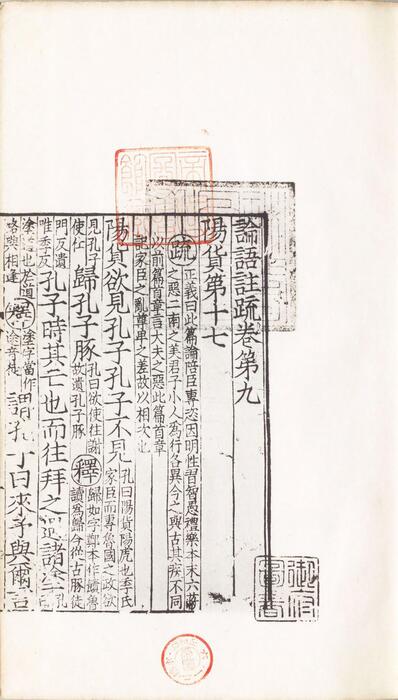 論語註疏卷第九
陽貨第十七
疏正義曰此篇論陪臣專恣因明性習智愚禮樂本末六蔽
之惡二南之美君子小人爲行各異今之與古其疾不同
以前篇首章言大夫之惡此篇首章
記家臣之亂尊卑之差故以相次也
陽貨欲見孔子孔子不見
孔曰陽貨陽虎也季氏
家臣而專魯國之政欲
見孔子
使仕
歸孔子豚
孔曰欲使往謝
故遺孔子豚
釋
歸如字鄭本作饋魯
讀爲歸今從古豚徒
門反遺
唯季反
孔子時其亡也而往拜之遇諸塗
孔
塗道也於道
路與相逢
釋
塗字當作
途音徒
謂孔子曰來予與爾言
御府
圖書